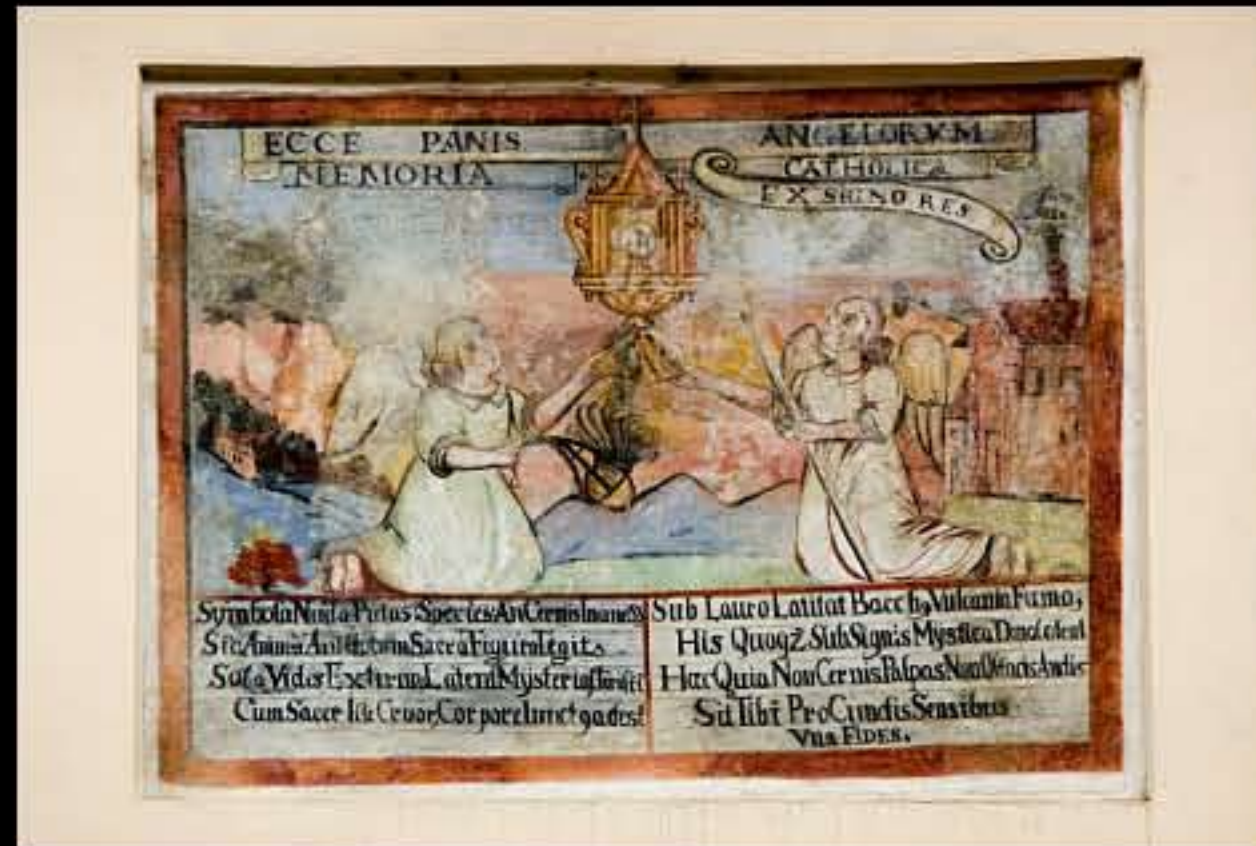 ECCE PANIS ANGELORVM
MEMORIA CATHOLICA
EX SIGNO RES
Symbola Nuda Putas Species An Cernis Inanes
Sic Animi Sacra Figura Tegit.
Sola Vides Externa Latent Mysteria
Cum Sacer Cruor, Corpore adest
Sub Lauro Latitat Bacchq Vulcania Fumo,
His Quoqz Sub Signis Mystica
Hæc Quia Non Cernis Palpas Non Audis
Sit Tibi Pro Cunctis Sensibus
Vna FIDES.